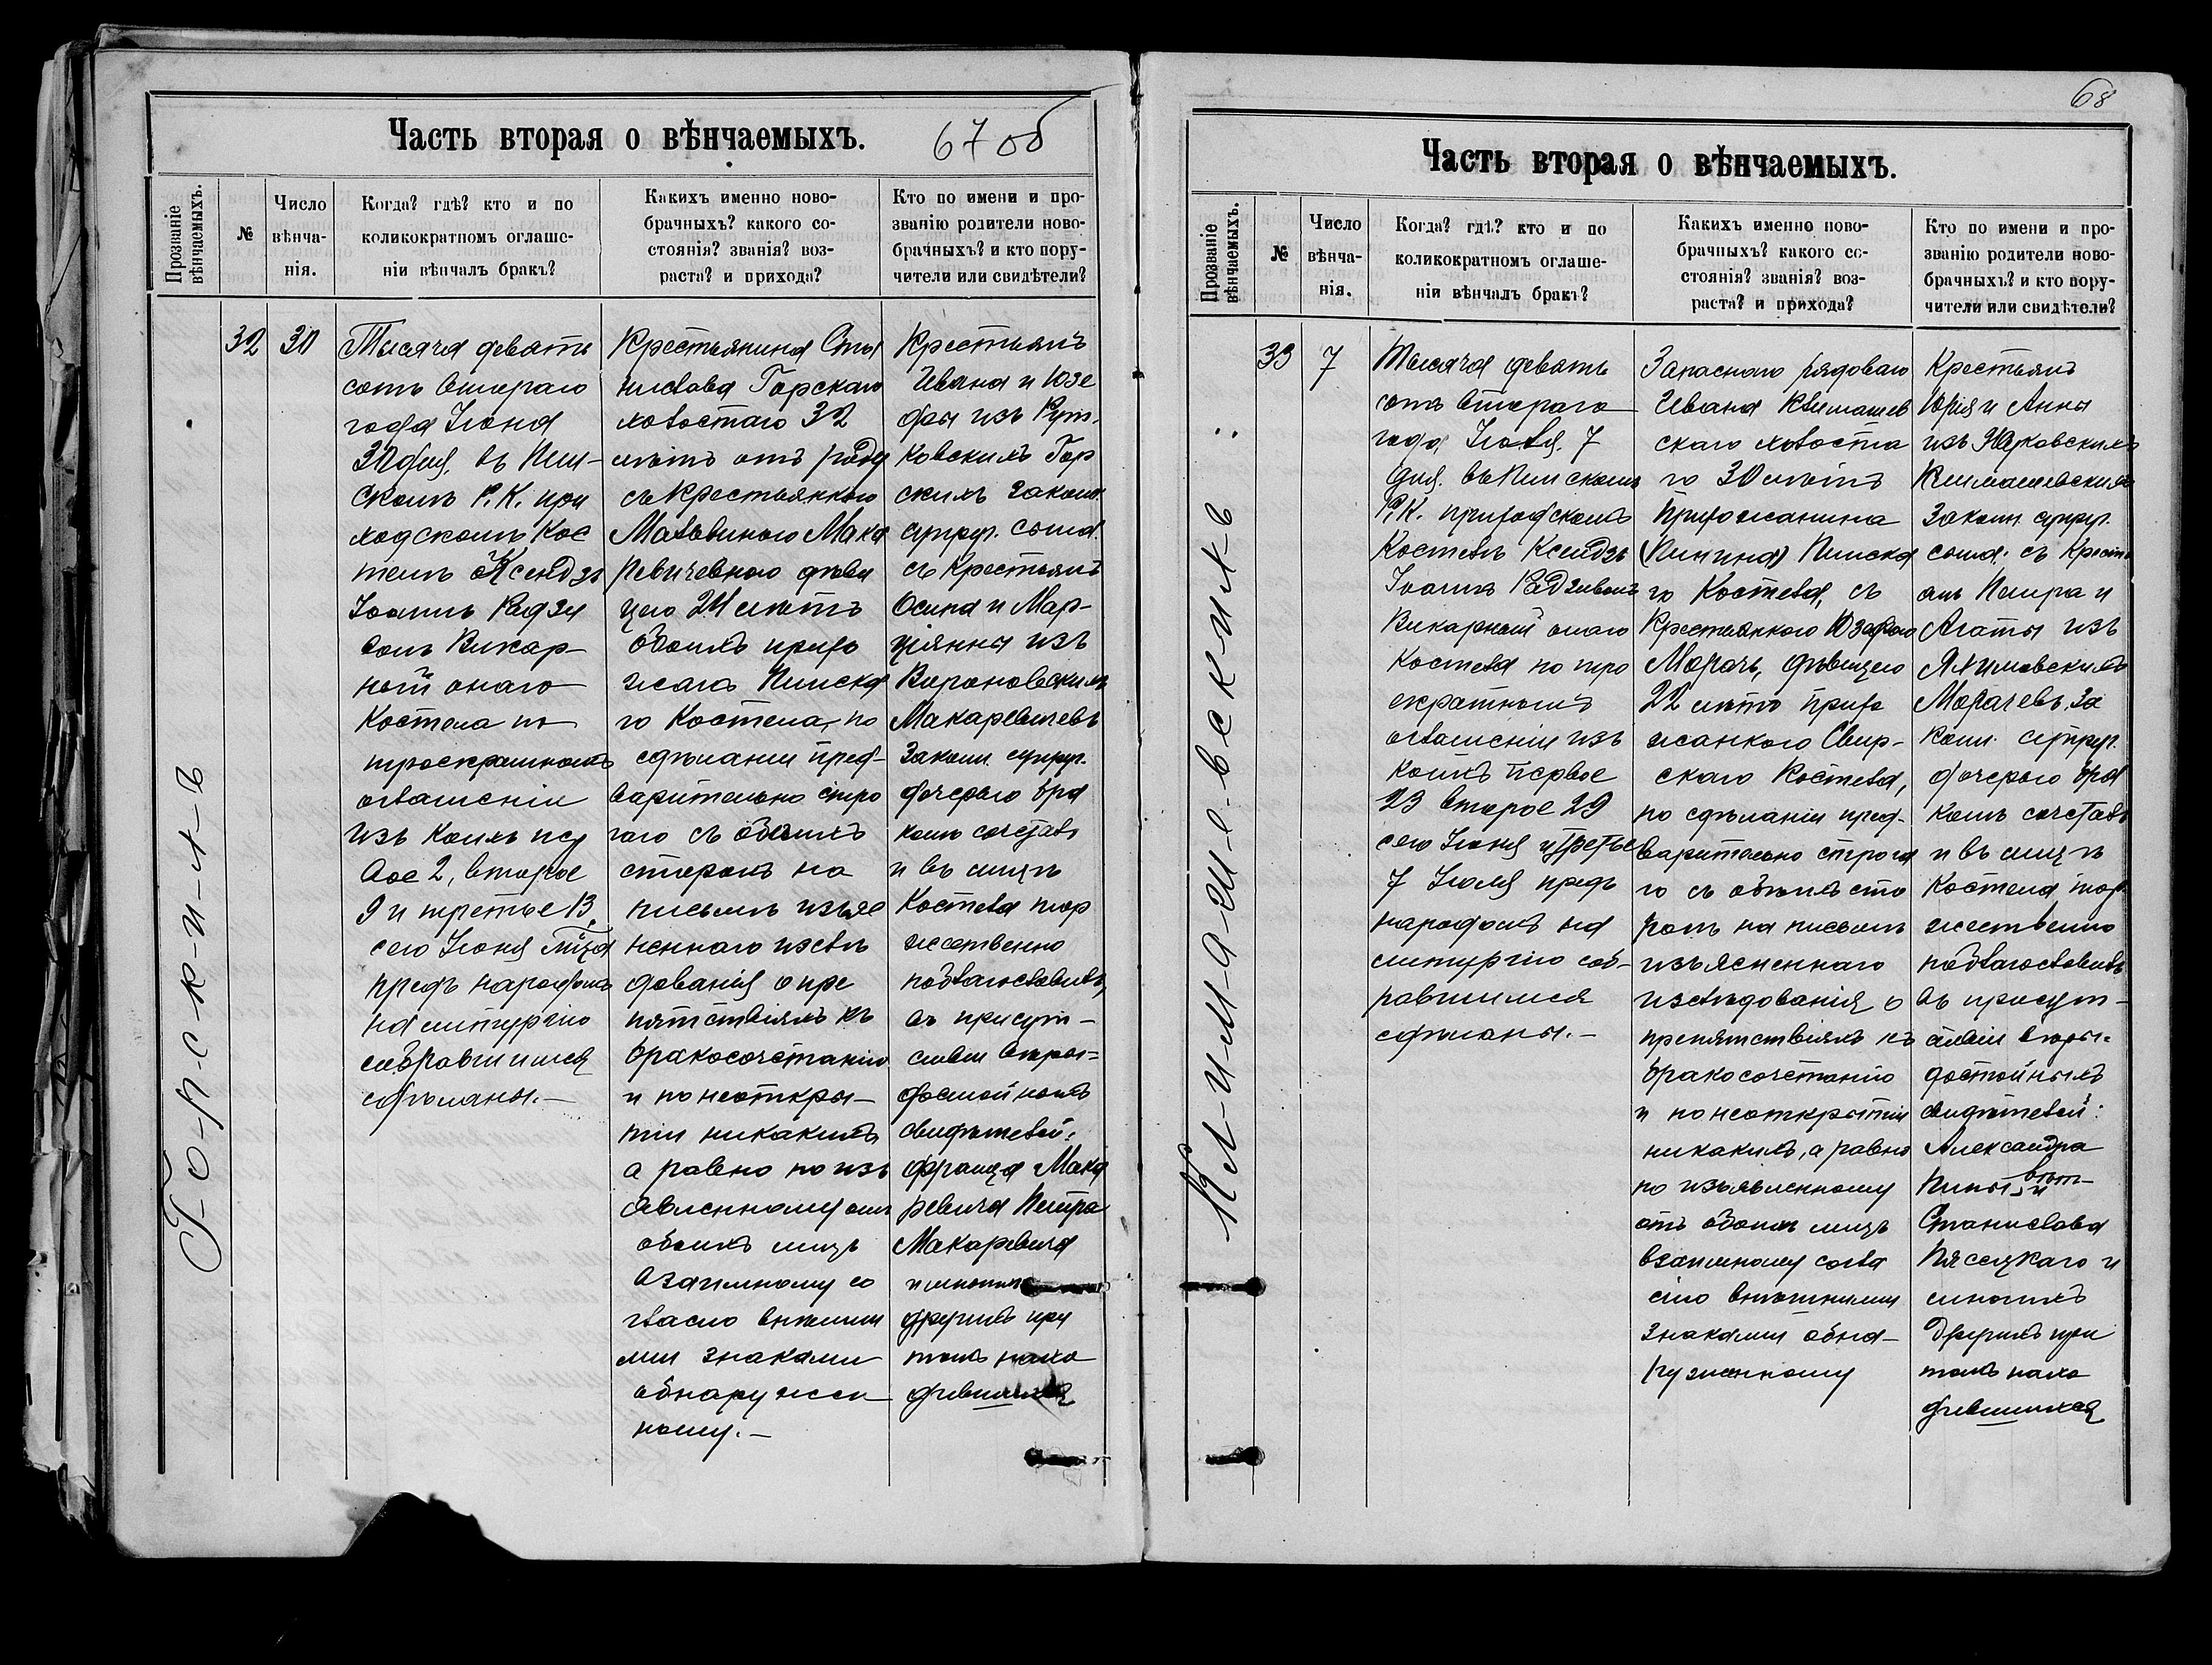 Часть вторая о вѣнчаемыхъ.
67 об
Прозваніе вѣнчаемыхъ.
№
Число вѣнча-
нія.
Когда? гдѣ? кто и по
коликократномъ оглаше-
ніи вѣнчалъ бракъ?
Каких именно ново-
брачныхъ? какого со-
стоянія? званія? воз-
раста? и прихода?
Кто по имени и про-
званію родители ново-
брачныхъ? и кто пору-
чители или свидѣтели?
Г-о-р-с-к-и-л-ъ
32
30
Тысяча девять
сотъ втораго
года Іюня
30 дня, въ Пин-
скомъ Р. К. при
ходскомъ Кос
телѣ Ксендзъ
Іоаннъ Радзи
Викар-
ный онаго
Костела по
троекратномъ
оглашеніи
изъ коихъ пер
вое 2, второе
9 и третье
сего Іюня м̃ца
предъ народомъ
на литургію
собравшимся
сдѣланы.—
Крестьянина Ста
нислава Горскаго
холостаго 32
лѣтъ отъ роду
съ крестьянкою
Мака
ревичевною дѣви
цею лѣтъ
обоихъ прихо
жанъ Пинска
го Костела, по
сдѣланіи пред-
варительно стро
гаго съ обоихъ
сторонъ на
письмѣ изъяс
неннаго изслѣ
дованія о пре
пятствіяхъ къ
бракосочетанію
и по неоткры-
тіи никакихъ
а равно по изъ
явленному отъ
обоихъ лицъ
взаимному со
гласію внѣшни
ми знаками
обнаружен
ному.—
Крестьянъ
Ивана и Юзе
фы изъ Рут-
ковскихъ Гор
скихъ законн.
супруг. сына
съ Крестьянъ
Осипа и Мар-
ціянны изъ
Вороновскихъ
Макаревичевъ
законн. супруг.
дочерью бра
комъ сочеталъ
и въ лицѣ
Костела тор
жественно
поблагословилъ,
въ присут-
ствіи вѣры-
достойныхъ
свидѣтелей:
Франца Мака
ревича Петра
Макаревича
и многихъ
другихъ при
томъ нахо
дившихся
68
Часть вторая о вѣнчаемыхъ.
Прозваніе вѣнчаемыхъ.
№
Число вѣнча-
нія.
Когда? гдѣ? кто и по
коликократномъ оглаше-
ніи вѣнчалъ бракъ?
Каких именно ново-
брачныхъ? какого со-
стоянія? званія? воз-
раста? и прихода?
Кто по имени и про-
званію родители ново-
брачныхъ? и кто пору-
чители или свидѣтели?
К-л-и-м-а-ш-е-в-с-к-и-л-ъ
33
7
Тысяча девять
сотъ втораго
года, Іюля 7
дня въ Пинскомъ
Р. К. приходскомъ
Костелѣ Ксендзъ
Іоаннъ
Викарный онаго
Костела по тро
екратномъ
оглашеніи изъ
коихъ первое
23 второе 29
сего Іюня и третье
7 Іюля предъ
народомъ на
литургію соб-
равшимся
сдѣланы.—
Запаснаго рядоваго
Ивана Климашев
скаго холоста
го 30 лѣтъ
Прихожанина
Пинска
го Костела, съ
Крестьянкою Юзефою
Морачъ, дѣвицею
22 лѣтъ прихо
жанкою Свир-
скаго Костела,
по сдѣланіи пред-
варительно строга
го съ обоихъ сто
ронъ на письмѣ
изъясненнаго
изслѣдованія о
препятствіяхъ къ
бракосочетанію
и по неоткрытіи
никакихъ, а равно
по изъявленному
отъ обоихъ лицъ
взаимному согла
сію внѣшними
знаками обна-
руженному
Крестьянъ
Юрія и Анны
изъ
Климашевскихъ
законн. супруг.
сына съ Кресть
янъ Петра и
Агаты изъ
Морачевъ, за
конн. супруг.
дочерью бра
комъ сочеталъ
и въ лицѣ
Костела тор-
жественно
поблагословилъ
въ присут-
ствіи вѣры-
достойныхъ
свидѣтелей:
Александра
Станислава
Пясецкаго и
многихъ
другихъ при
томъ нахо
дившихся